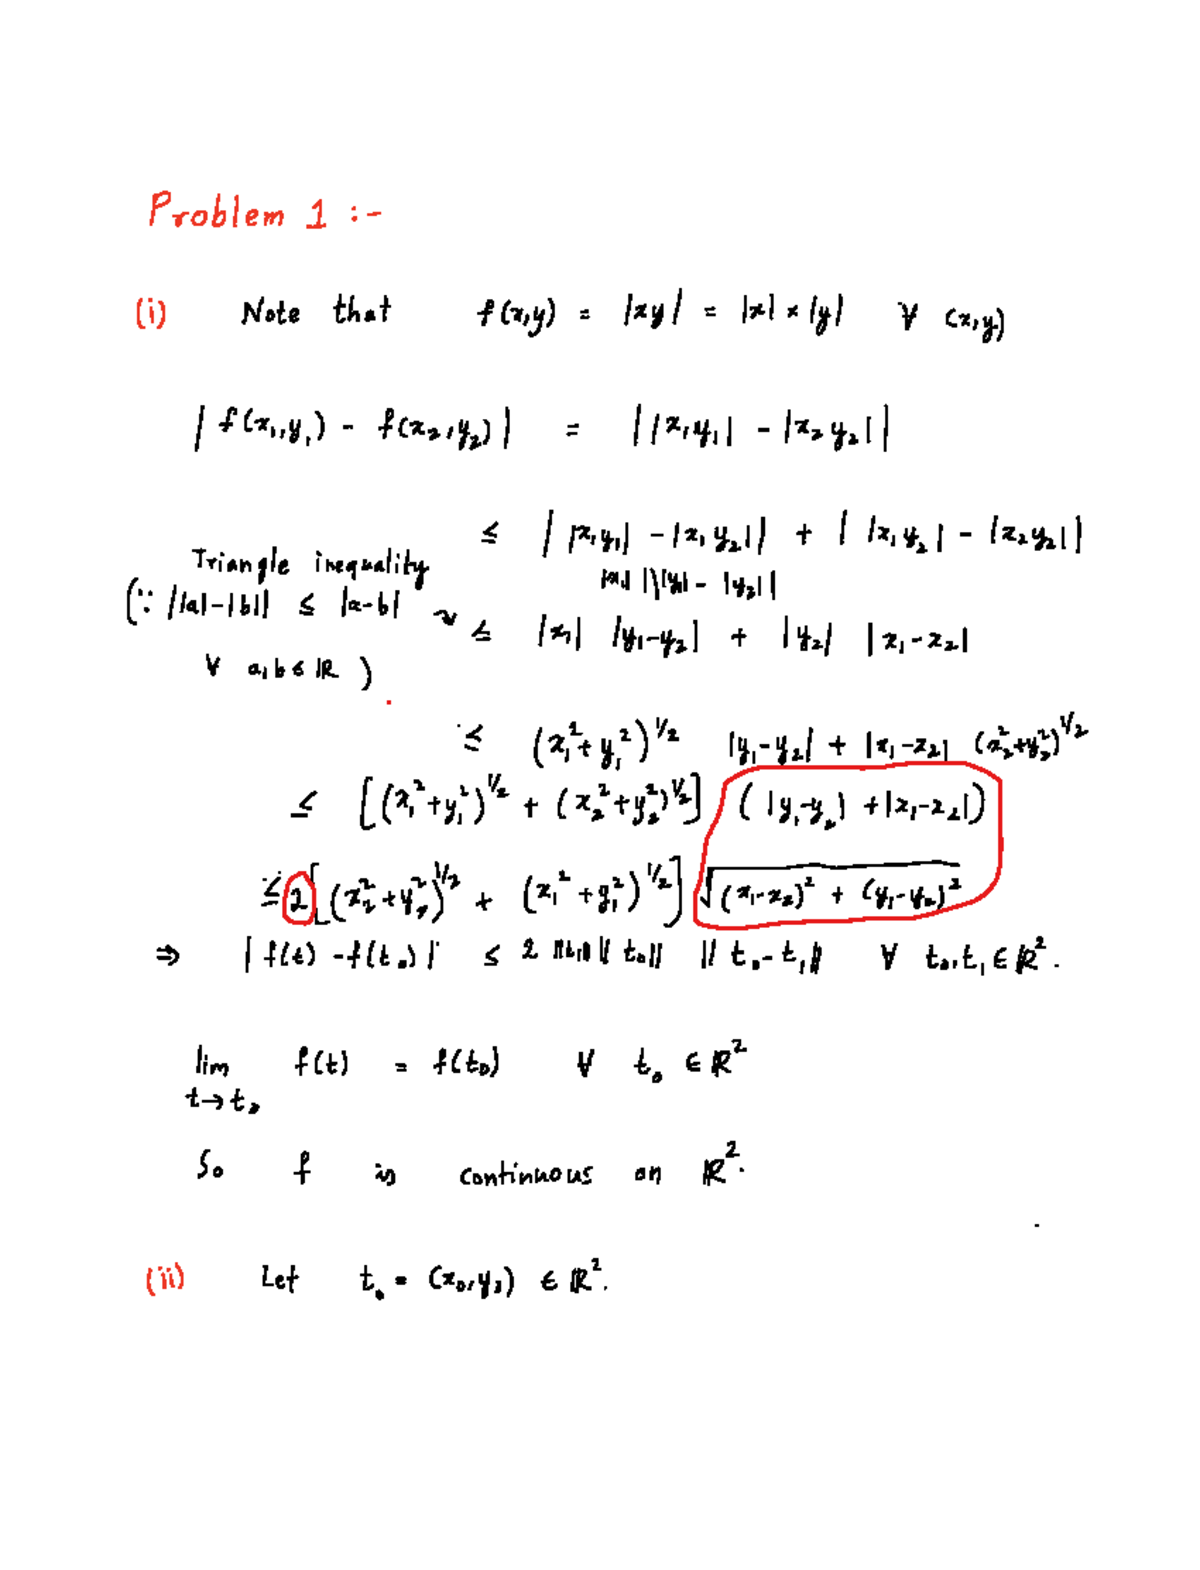 Problem 1 :-
(i) Note that f(x,y) = |xy| = |x| × |y| ∀ (x,y)
| f(x₁,y₁) - f(x₂,y₂) | = | |x₁y₁| - |x₂y₂| |
≤ | |x₁y₁| - |x₁y₂| | + | |x₁y₂| - |x₂y₂| |
|x₁| | |y₁| - |y₂| |
Triangle inequality
(∵ ||a|-|b|| ≤ |a-b| ↝ ≤ |x₁| |y₁-y₂| + |y₂| |x₁-x₂|
∀ a,b ∈ ℝ )
≤ (x₁²+y₁²)^1/2 |y₁-y₂| + |x₁-x₂| (x₂²+y₂²)^1/2
≤ [(x₁²+y₁²)^1/2 + (x₂²+y₂²)^1/2] (|y₁-y₂| + |x₁-x₂|)
≤ 2 [(x₂²+y₂²)^1/2 + (x₁²+y₁²)^1/2] √(x₁-x₂)² + (y₁-y₂)²
⇒ | f(t) - f(t₀) | ≤ 2 ||t₁|| || t₀|| || t₀-t₁|| ∀ t₀,t₁ ∈ ℝ².
lim f(t) = f(t₀) ∀ t₀ ∈ ℝ²
t→t₀
So f is continuous on ℝ².
(ii) Let t₀ = (x₀,y₀) ∈ ℝ².